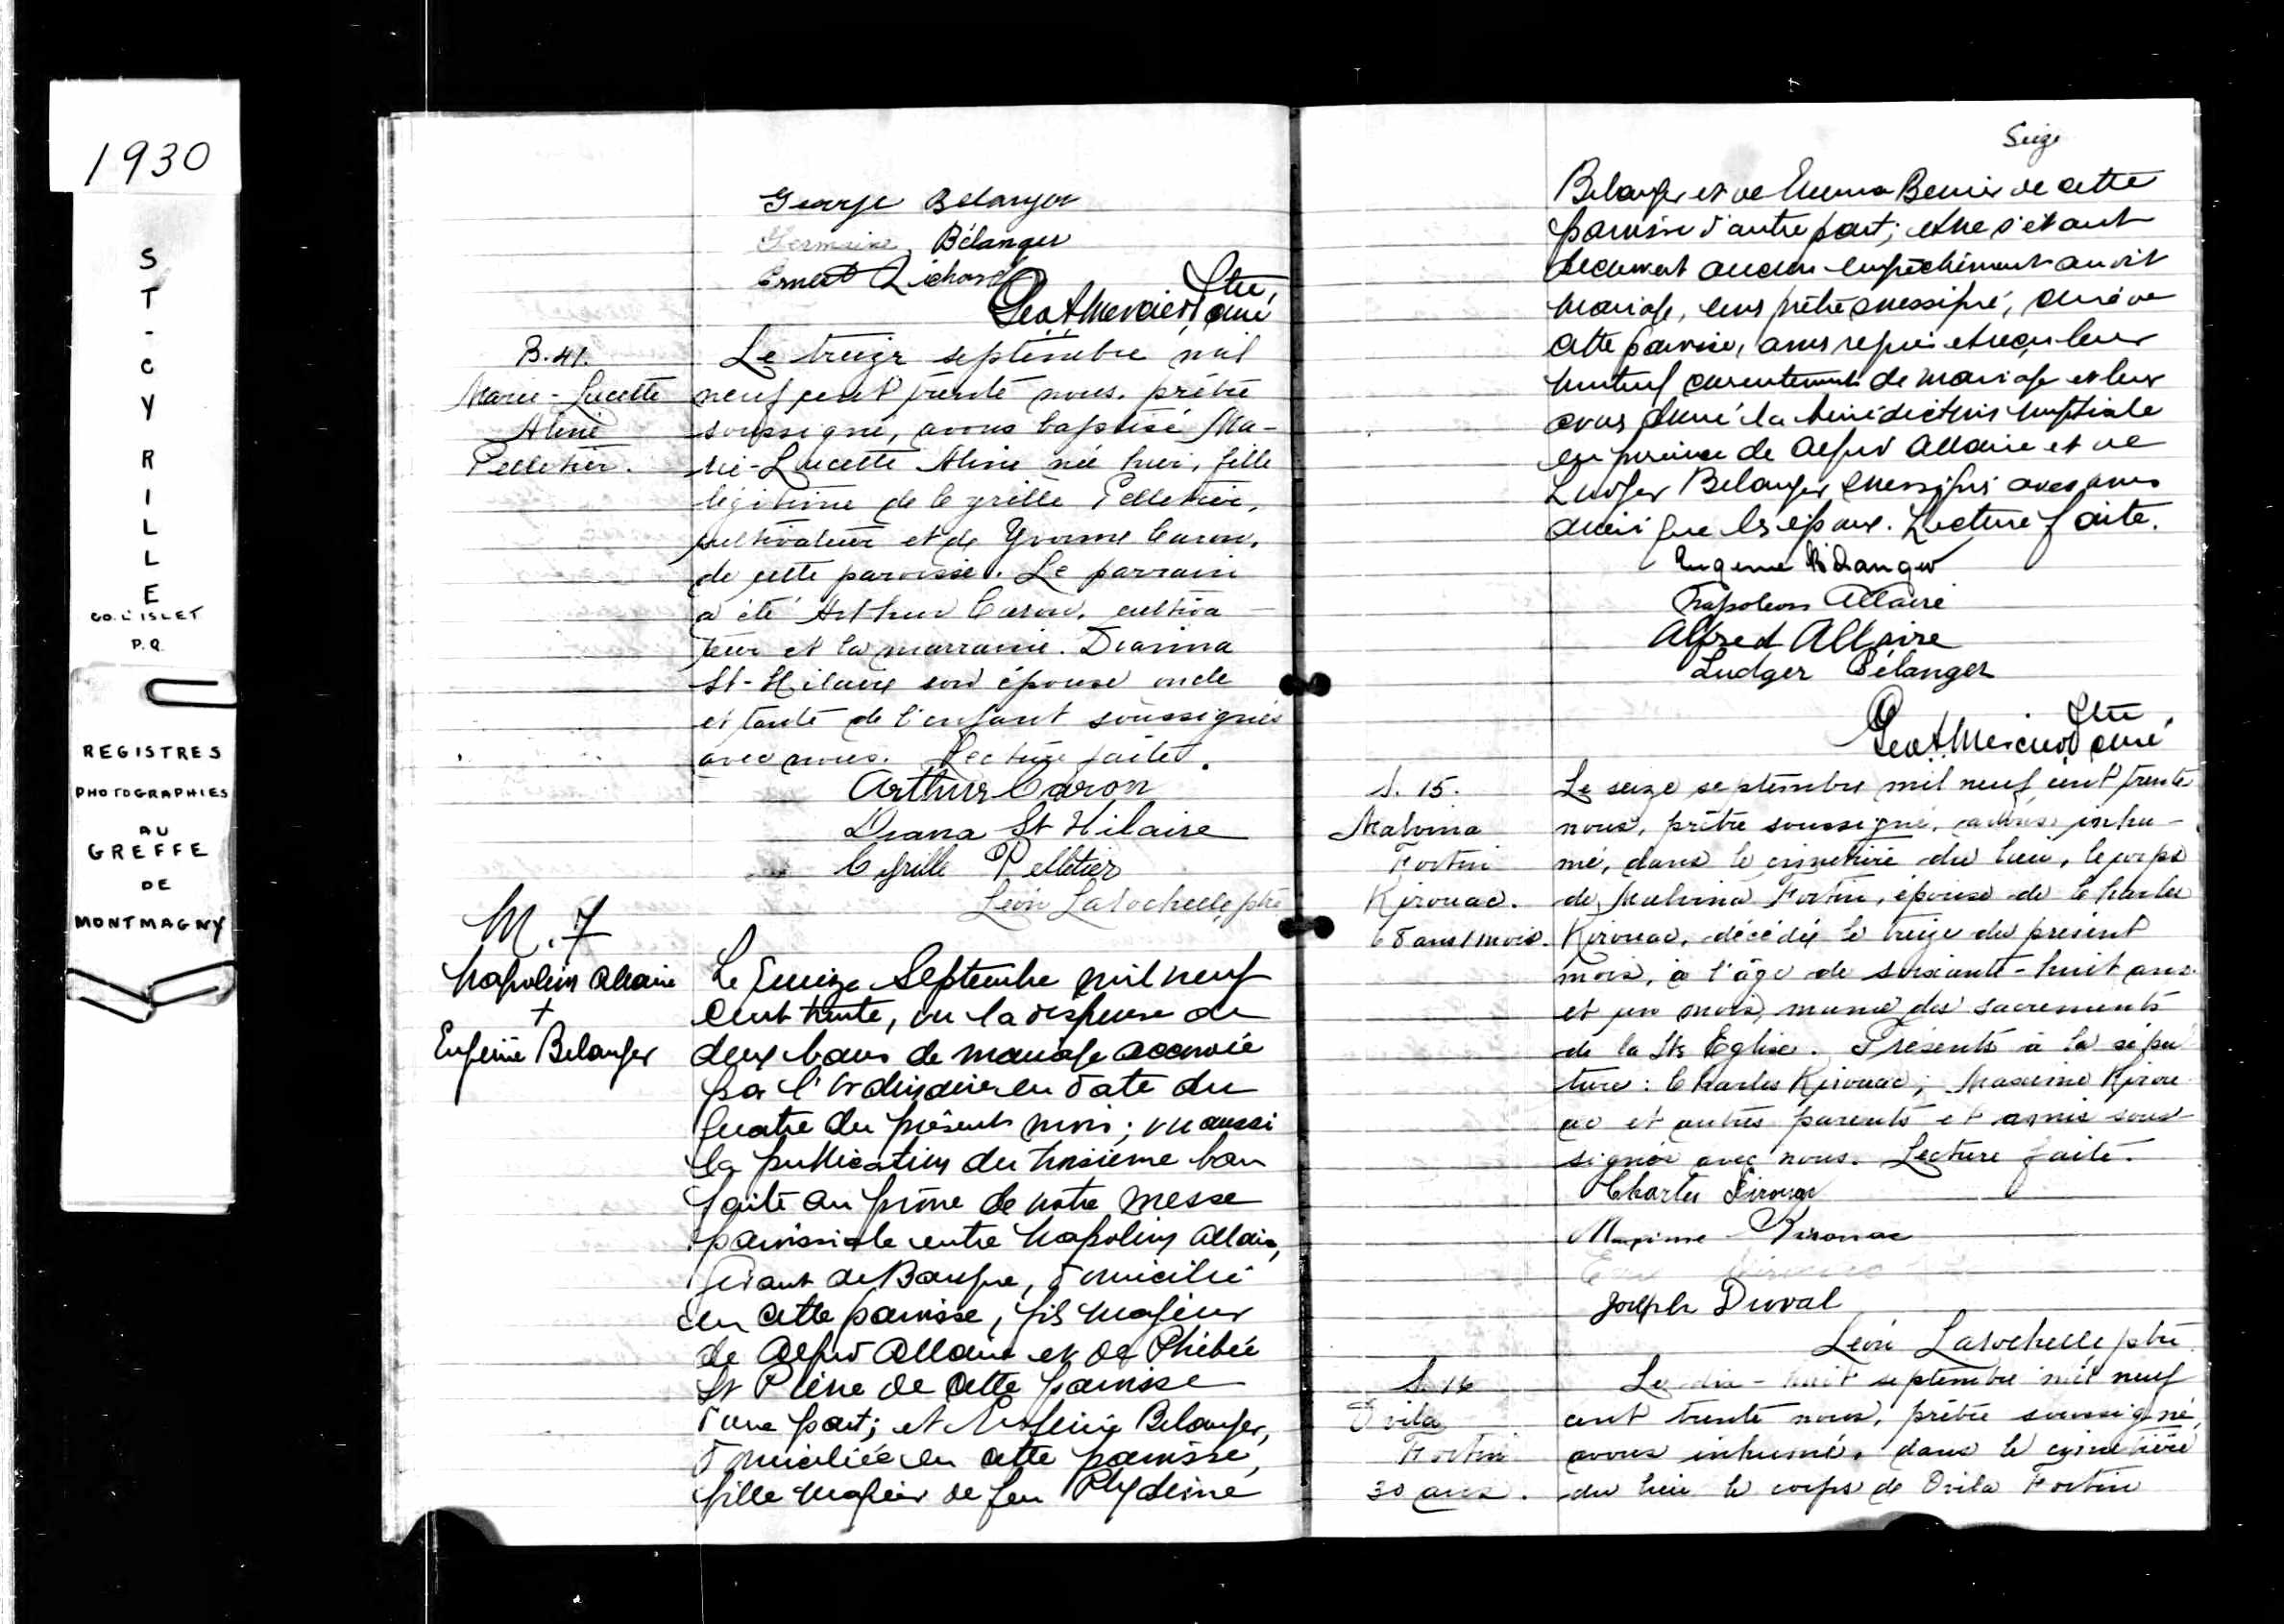 1930
ST-CYRILLE
CO. L'ISLET
P.Q.
REGISTRES
PHOTOGRAPHIES
AU
GREFFE
DE
MONTMAGNY
George Belanger
Germaine Bélanger
Ernest Richard
Geo A Mercier Ptre, curé
B. 41.
Marie-Lucette
Aline
Pelletier.
Le treize septembre mil
neuf cent trente nous, prêtre
soussigné, avons baptisé Ma-
rie-Lucette Aline née hier, fille
légitime de Cyrille Pelletier,
cultivateur et de Yvonne Caron,
de cette paroisse. Le parrain
a été Arthur Caron, cultiva-
teur et la marraine Dianna
St-Hilaire son épouse oncle
et tante de l'enfant soussignés
avec nous. Lecture faite.
Arthur Caron
Diana St Hilaire
Cyrille Pelletier
Léon Larochelle ptre
M. 7
Napoléon Allaire
+
Eugénie Belanger
Le quinze Septembre mil neuf
cent trente, vu la dispense de
deux bans de mariage accordée
par l'Ordinaire en date du
quatre du présent mois; vu aussi
la publication du troisième ban
faite au prône de notre messe
paroissiale entre Napoléon Allaire,
gérant de Banque, domicilié
en cette paroisse, fils majeur
de Alfred Allaire et de Phébée
St Pierre de cette paroisse
d'une part; et Eugénie Belanger,
domiciliée en cette paroisse,
fille majeur de feu Phydime
Seize
Belanger et de Emma Bernier de cette
paroisse d'autre part; et ne s'étant
découvert aucun empêchement au dit
mariage, nous prêtre soussigné, curé de
cette paroisse, avons requis et reçu leur
mutuel consentement de mariage et leur
avons donné la bénédiction nuptiale
en présence de Alfred Allaire et de
Ludger Belanger soussignés avec nous
ainsi que les époux. Lecture faite.
Eugenie Bélanger
Napoleon Allaire
Alfred Allaire
Ludger Bélanger
Geo A Mercier Ptre, curé
S. 15.
Malvina
Fortin
Kirouac.
68 ans 1 mois.
Le seize septembre mil neuf cent trente
nous, prêtre soussigné, avons inhu-
mé, dans le cimetière du lieu, le corps
de Malvina Fortin, épouse de Charles
Kirouac, décédée le treize du présent
mois, à l'âge de soixante-huit ans
et un mois, munie des sacrements
de la Ste Eglise. Présents à la sépul
ture: Charles Kirouac; Maxime Kirou
ac et autres parents et amis sous-
signés avec nous. Lecture faite.
Charles Kirouac
Maxime Kirouac
Joseph Duval
Léon Larochelle ptre
S. 16
Ovila
Fortin
30 ans.
Le dix-huit septembre mil neuf
cent trente nous, prêtre soussigné,
avons inhumé, dans le cimetière
du lieu le corps de Ovila Fortin